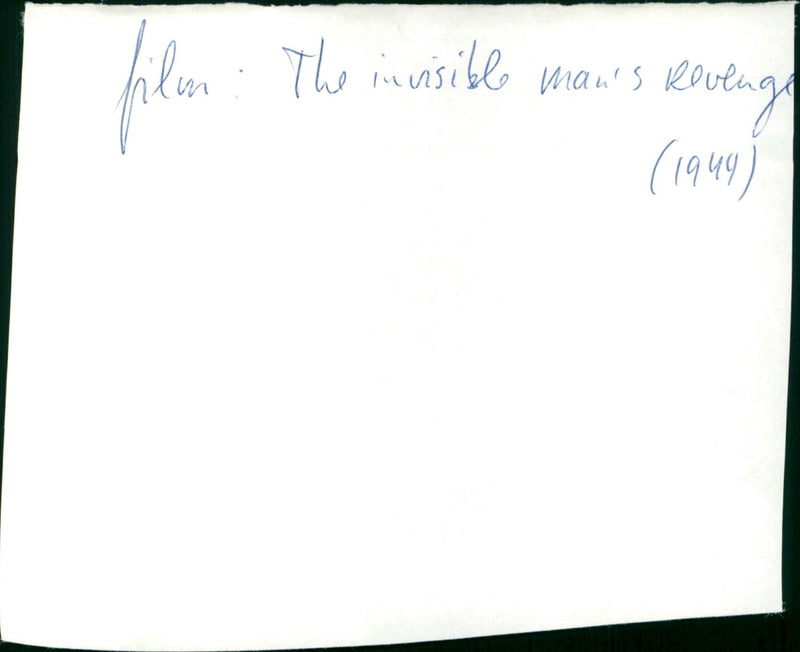 film: The invisible man's revenge
(1944)